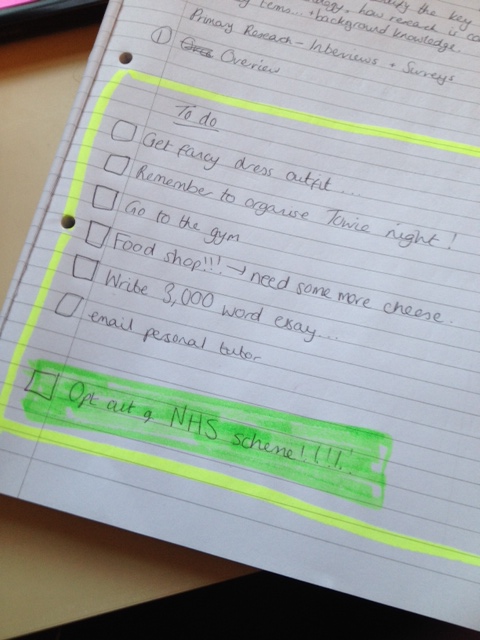 the key
items... + background knowledge.
Primary Research - Interviews + Surveys
① Overview
To do
Get fancy dress outfit ...
Remember to organise Towie night!
Go to the gym
Food shop!!! → need some more cheese.
Write 3,000 word essay...
email personal tutor
Opt out of NHS scheme!!!!!